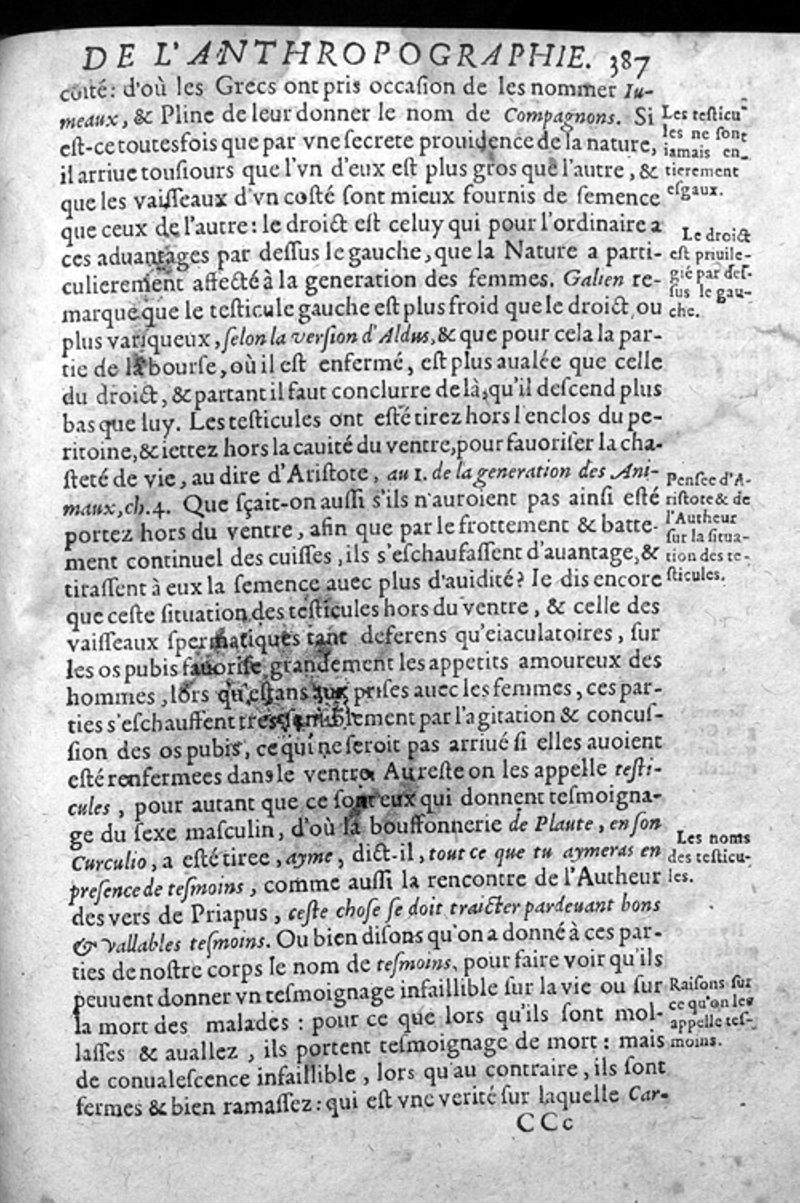 DE L'ANTHROPOGRAPHIE. 387
coité: d'où les Grecs ont pris occaſion de les nommer Iu-
meaux, & Pline de leur donner le nom de Compagnons. Si
eſt-ce toutesfois que par vne ſecrete prouidence de la nature,
il arriue touſiours que l'vn d'eux eſt plus gros que l'autre, &
que les vaiſſeaux d'vn coſté ſont mieux fournis de ſemence
que ceux de l'autre: le droict eſt celuy qui pour l'ordinaire a
ces aduantages par deſſus le gauche, que la Nature a parti-
culierement affecté à la generation des femmes. Galien re-
marque que le teſticule gauche eſt plus froid que le droict, ou
plus variqueux, ſelon la verſion d'Aldus, & que pour cela la par-
tie de la bourſe, où il eſt enfermé, eſt plus aualée que celle
du droict, & partant il faut conclurre de là, qu'il deſcend plus
bas que luy. Les teſticules ont eſté tirez hors l'enclos du pe-
ritoine, & iettez hors la cauité du ventre, pour fauoriſer la cha-
ſteté de vie, au dire d'Ariſtote, au 1. de la generation des Ani-
maux, ch. 4. Que ſçait-on auſſi s'ils n'auroient pas ainſi eſté
portez hors du ventre, afin que par le frottement & batte-
ment continuel des cuiſſes, ils s'eſchaufaſſent d'auantage, &
tiraſſent à eux la ſemence auec plus d'auidité? Ie dis encore
que ceſte ſituation des teſticules hors du ventre, & celle des
vaiſſeaux ſpermatiques tant deferens qu'eiaculatoires, ſur
les os pubis fauoriſe grandement les appetits amoureux des
hommes, lors qu'eſtans aux priſes auec les femmes, ces par-
ties s'eſchauffent tres-ſenſiblement par l'agitation & concuſ-
ſion des os pubis, ce qui ne ſeroit pas arriué ſi elles auoient
eſté renfermees dans le ventre. Au reſte on les appelle teſti-
cules, pour autant que ce ſont eux qui donnent teſmoigna-
ge du ſexe maſculin, d'où la bouffonnerie de Plaute, en ſon
Curculio, a eſté tiree, ayme, dict-il, tout ce que tu aymeras en
preſence de teſmoins, comme auſſi la rencontre de l'Autheur
des vers de Priapus, ceſte choſe ſe doit traicter pardeuant bons
& vallables teſmoins. Ou bien diſons qu'on a donné à ces par-
ties de noſtre corps le nom de teſmoins, pour faire voir qu'ils
peuuent donner vn teſmoignage infaillible ſur la vie ou ſur
la mort des malades: pour ce que lors qu'ils ſont mol-
laſſes & auallez, ils portent teſmoignage de mort: mais
de conualeſcence infaillible, lors qu'au contraire, ils ſont
fermes & bien ramaſſez: qui eſt vne verité ſur laquelle Car-
CCc
Les teſticu-
les ne ſont
iamais en-
tierement
eſgaux.
Le droict
eſt priuile-
gié par deſ-
ſus le gau-
che.
Penſee d'A-
riſtote & de
l'Autheur
ſur la ſitua-
tion des te-
ſticules.
Les noms
des teſticu-
les.
Raiſons ſur
ce qu'on les
appelle teſ-
moins.